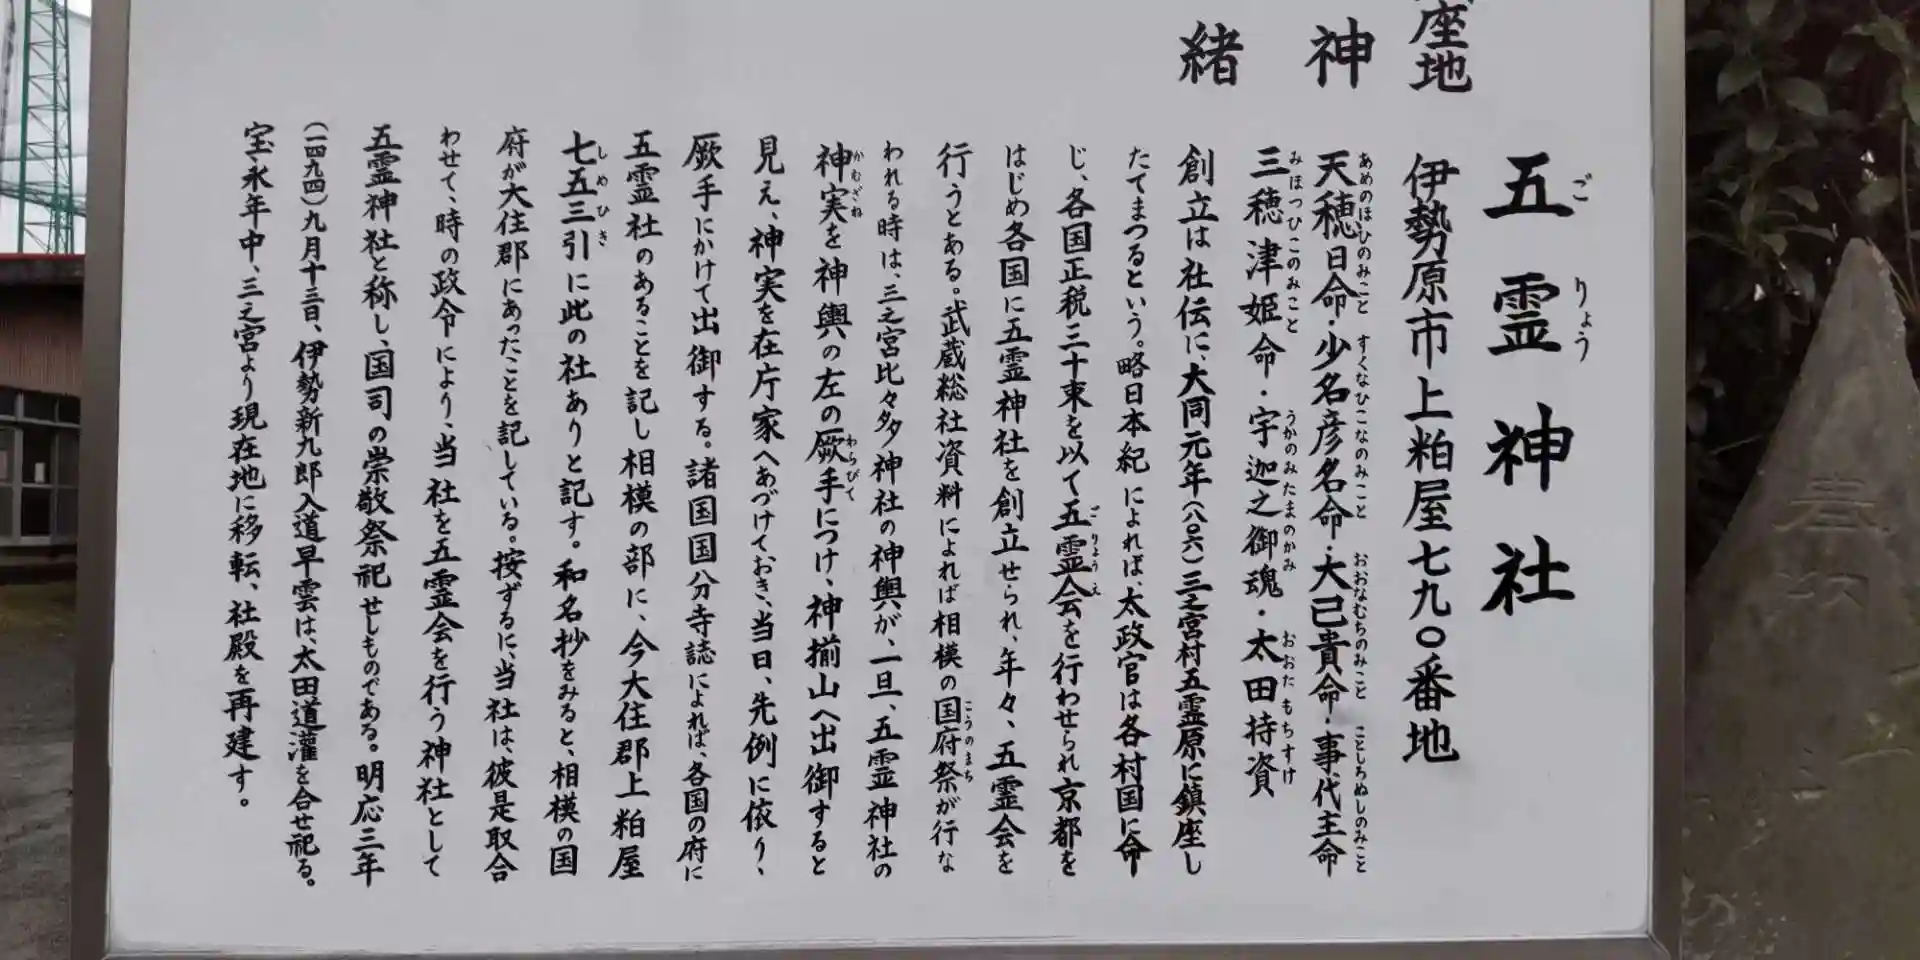 五霊神社
ごりょう
座地 伊勢原市上粕屋七九〇番地
神 天穂日命・少名彦名命・大己貴命・事代主命
あめのほひのみこと すくなひこなのみこと おおなむちのみこと ことしろぬしのみこと
三穂津姫命・宇迦之御魂・太田持資
みほつひこのみこと うかのみたまのかみ おおたもちすけ
緒 創立は社伝に、大同元年(八〇六)三之宮村五霊原に鎮座し
たてまつるという。略日本紀によれば、太政官は各村国に命
じ、各国正税三十束を以て五霊会を行わせられ京都を
ごりょうえ
はじめ各国に五霊神社を創立せられ、年々、五霊会を
行うとある。武蔵総社資料によれば相模の国府祭が行な
こうのまち
われる時は、三之宮比々多神社の神輿が、一旦、五霊神社の
神実を神輿の左の厥手につけ、神揃山へ出御すると
かむざね わらびて
見え、神実を在庁家へあづけておき、当日、先例に依り、
厥手にかけて出御する。諸国国分寺誌によれば、各国の府に
五霊社のあることを記し相模の部に、今大住郡上粕屋
七五三引に此の社ありと記す。和名抄をみると、相模の国
しめひき
府が大住郡にあったことを記している。按ずるに、当社は、彼是取合
わせて、時の政令により、当社を五霊会を行う神社として
五霊神社と称し、国司の崇敬祭祀せしものである。明応三年
(一四九四)九月十三日、伊勢新九郎入道早雲は、太田道灌を合せ祀る。
宝永年中、三之宮より現在地に移転、社殿を再建す。
春